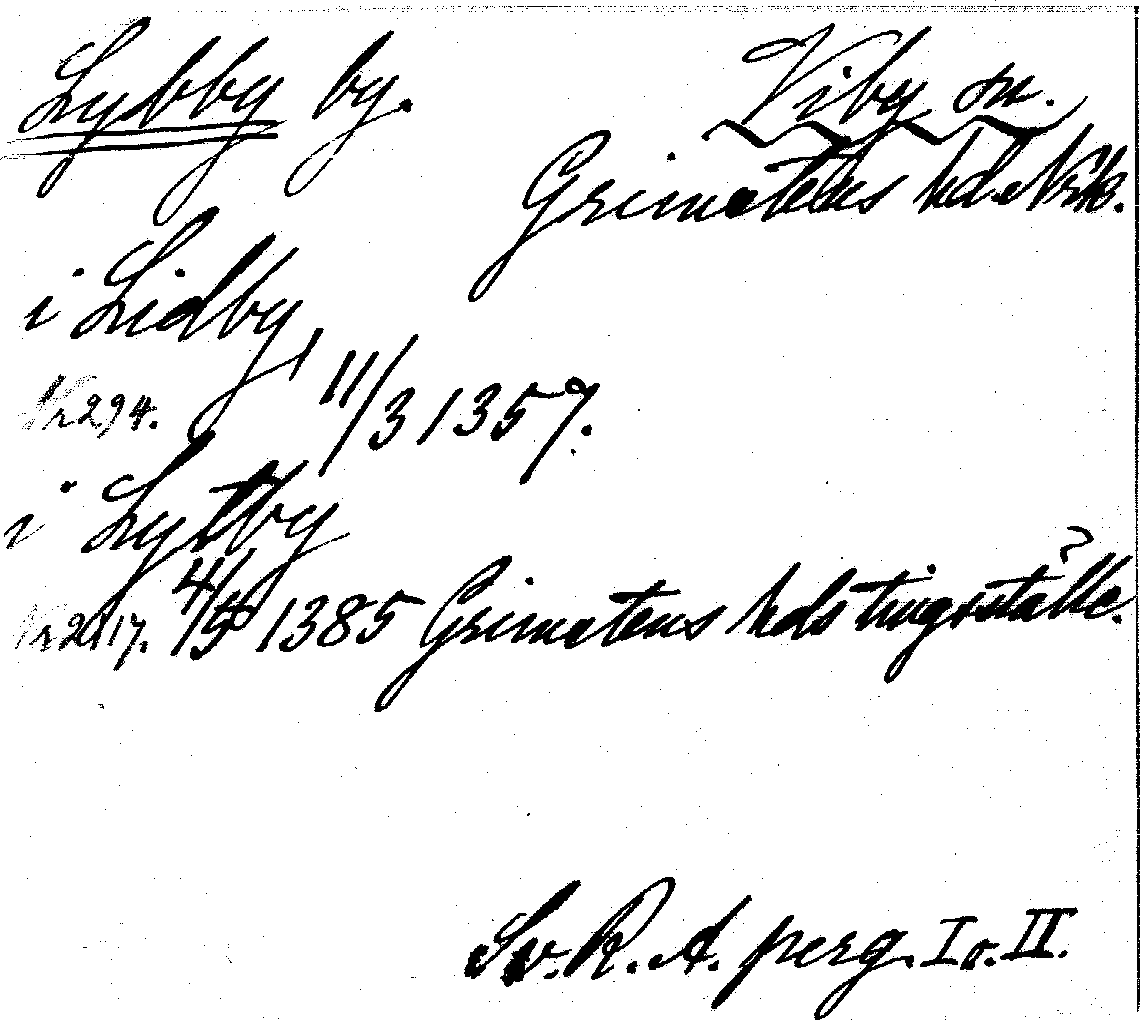 Lybby by. Viby sn.
Grimstens hd. Nrk.
i Lidby,
Nr 294. 11/3 1357.
i Lytby
Nr 2417. 4/5 1385 Grimstens hds tingsställe.
?
Sv. R. A. perg. I o. II.